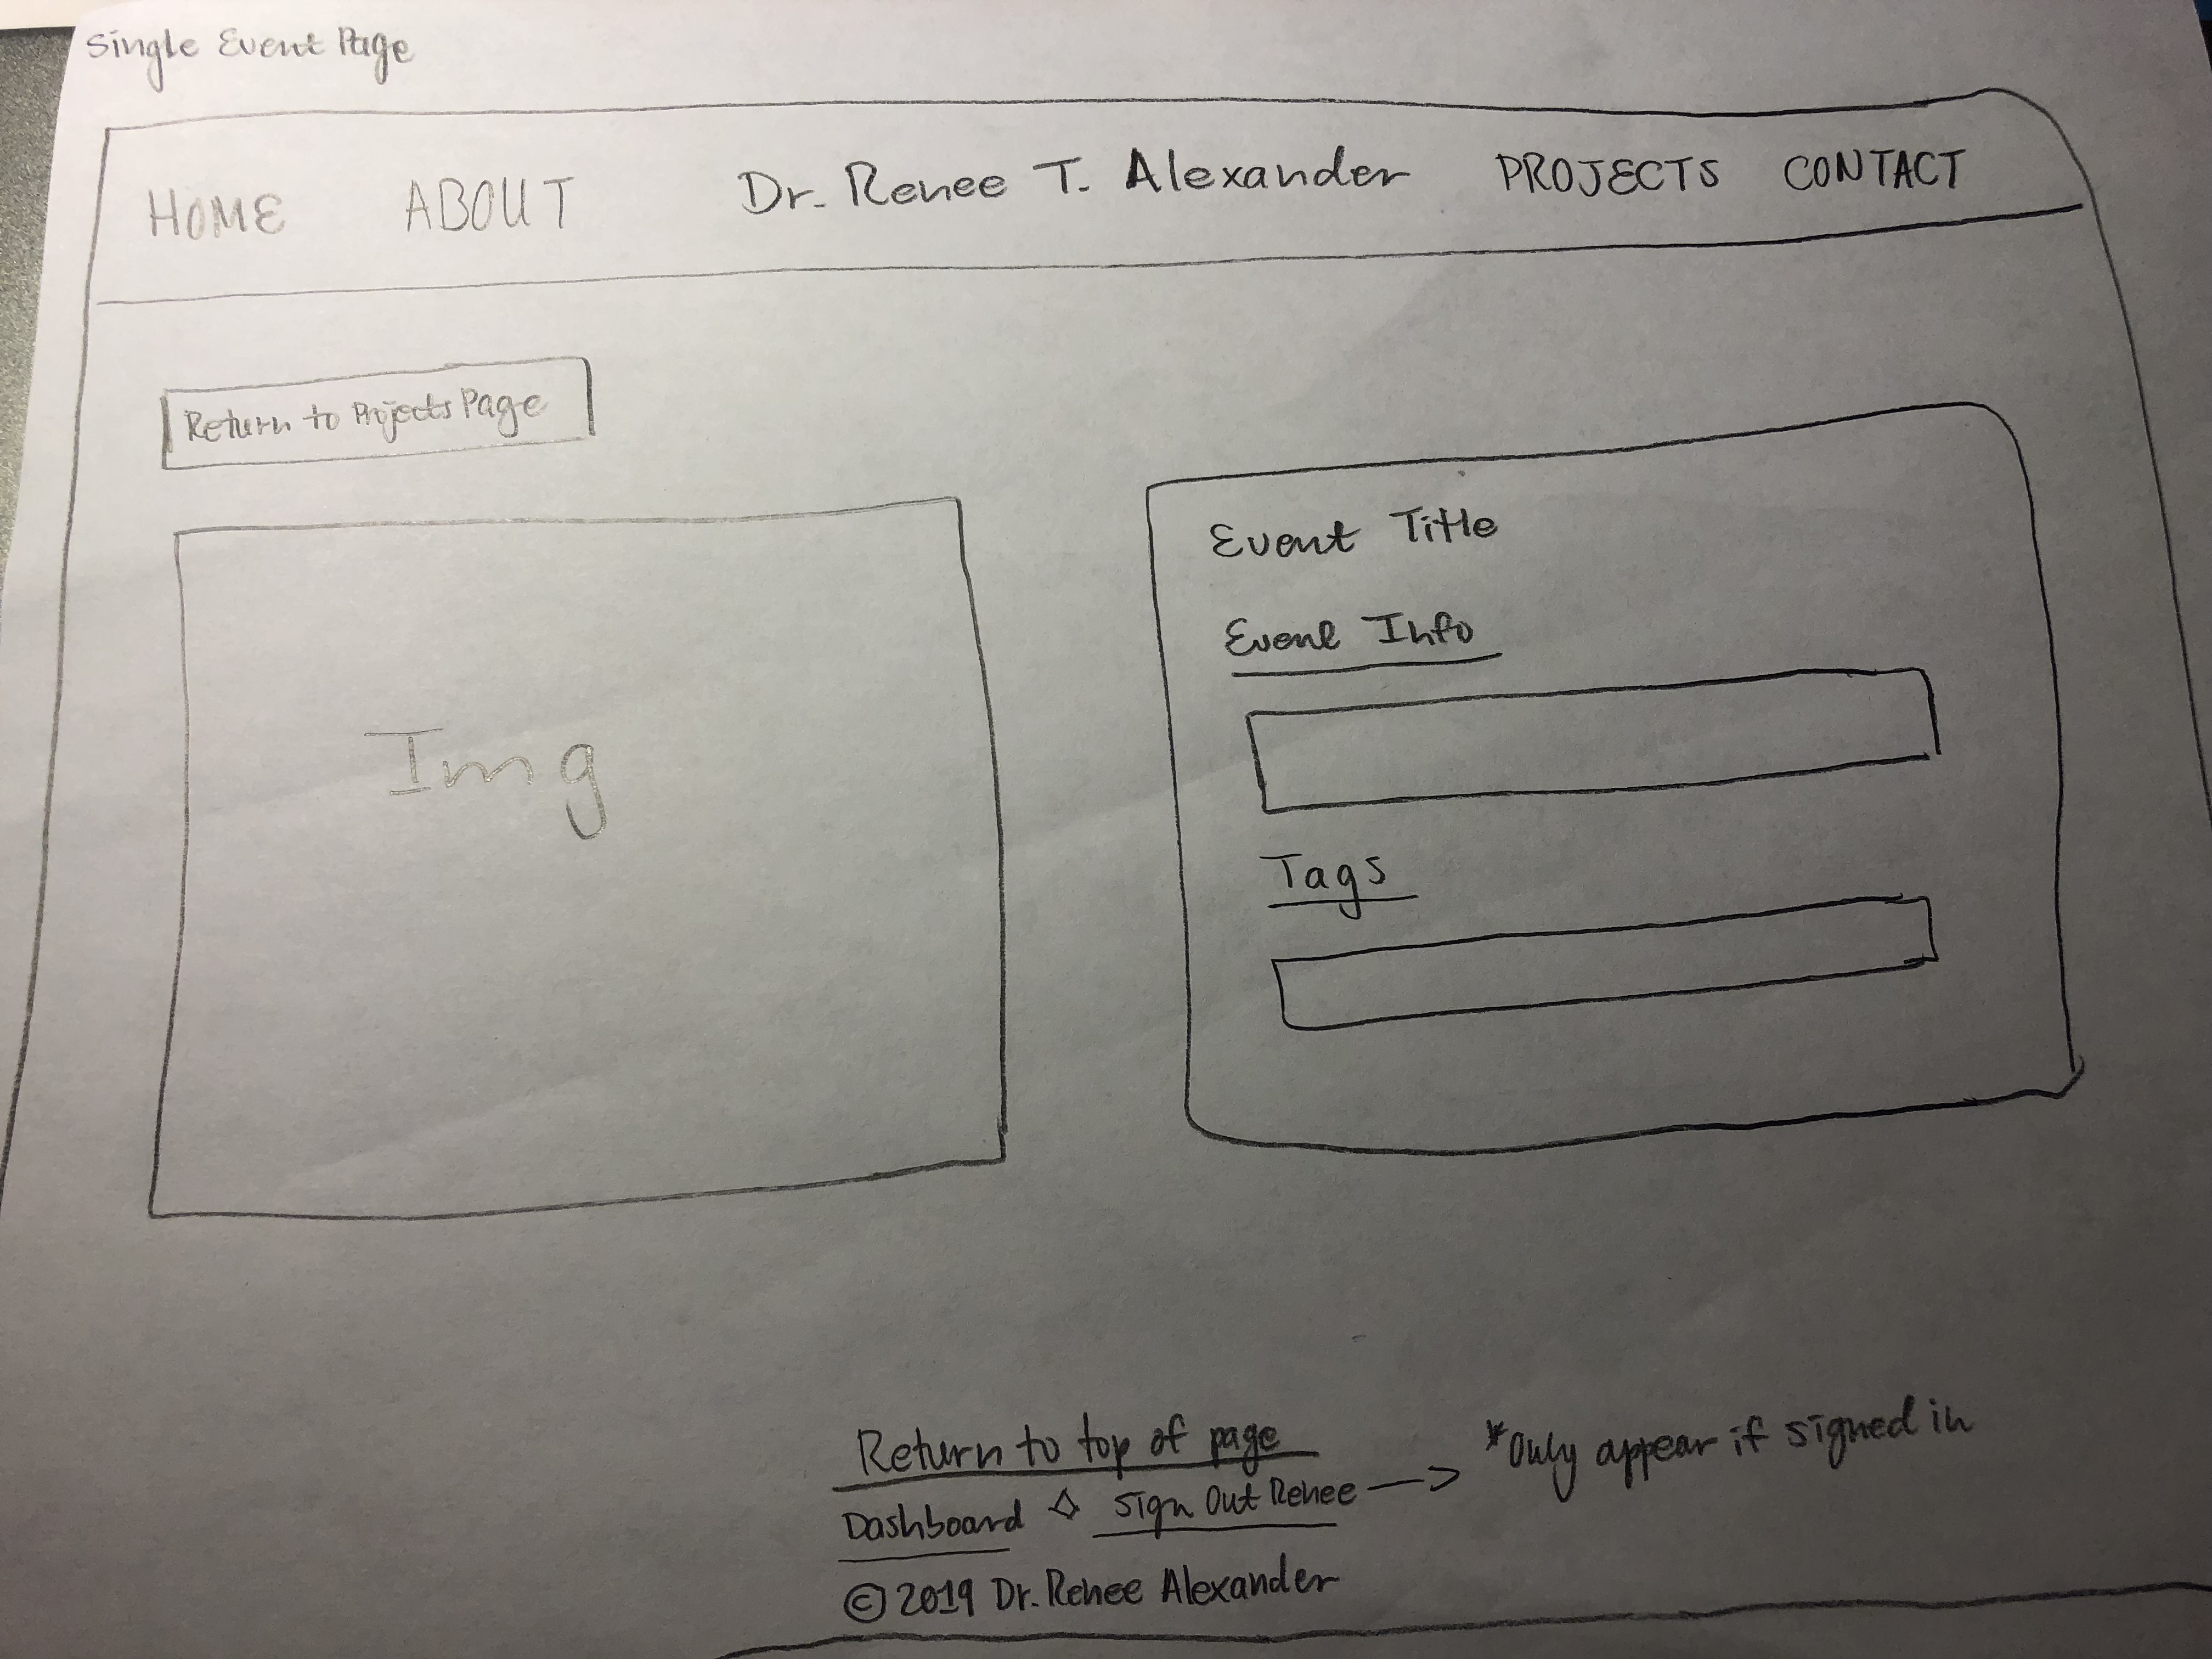 Single Event Page
HOME ABOUT Dr. Renee T. Alexander PROJECTS CONTACT
Return to Projects Page
Img
Event Title
Event Info
Tags
Return to top of page
Dashboard ◇ Sign Out Renee → *Only appear if signed in
© 2019 Dr. Renee Alexander